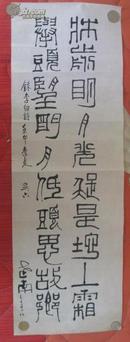 牀前明月光疑是地上霜
舉頭望明月低頭思故鄉
録李白詩